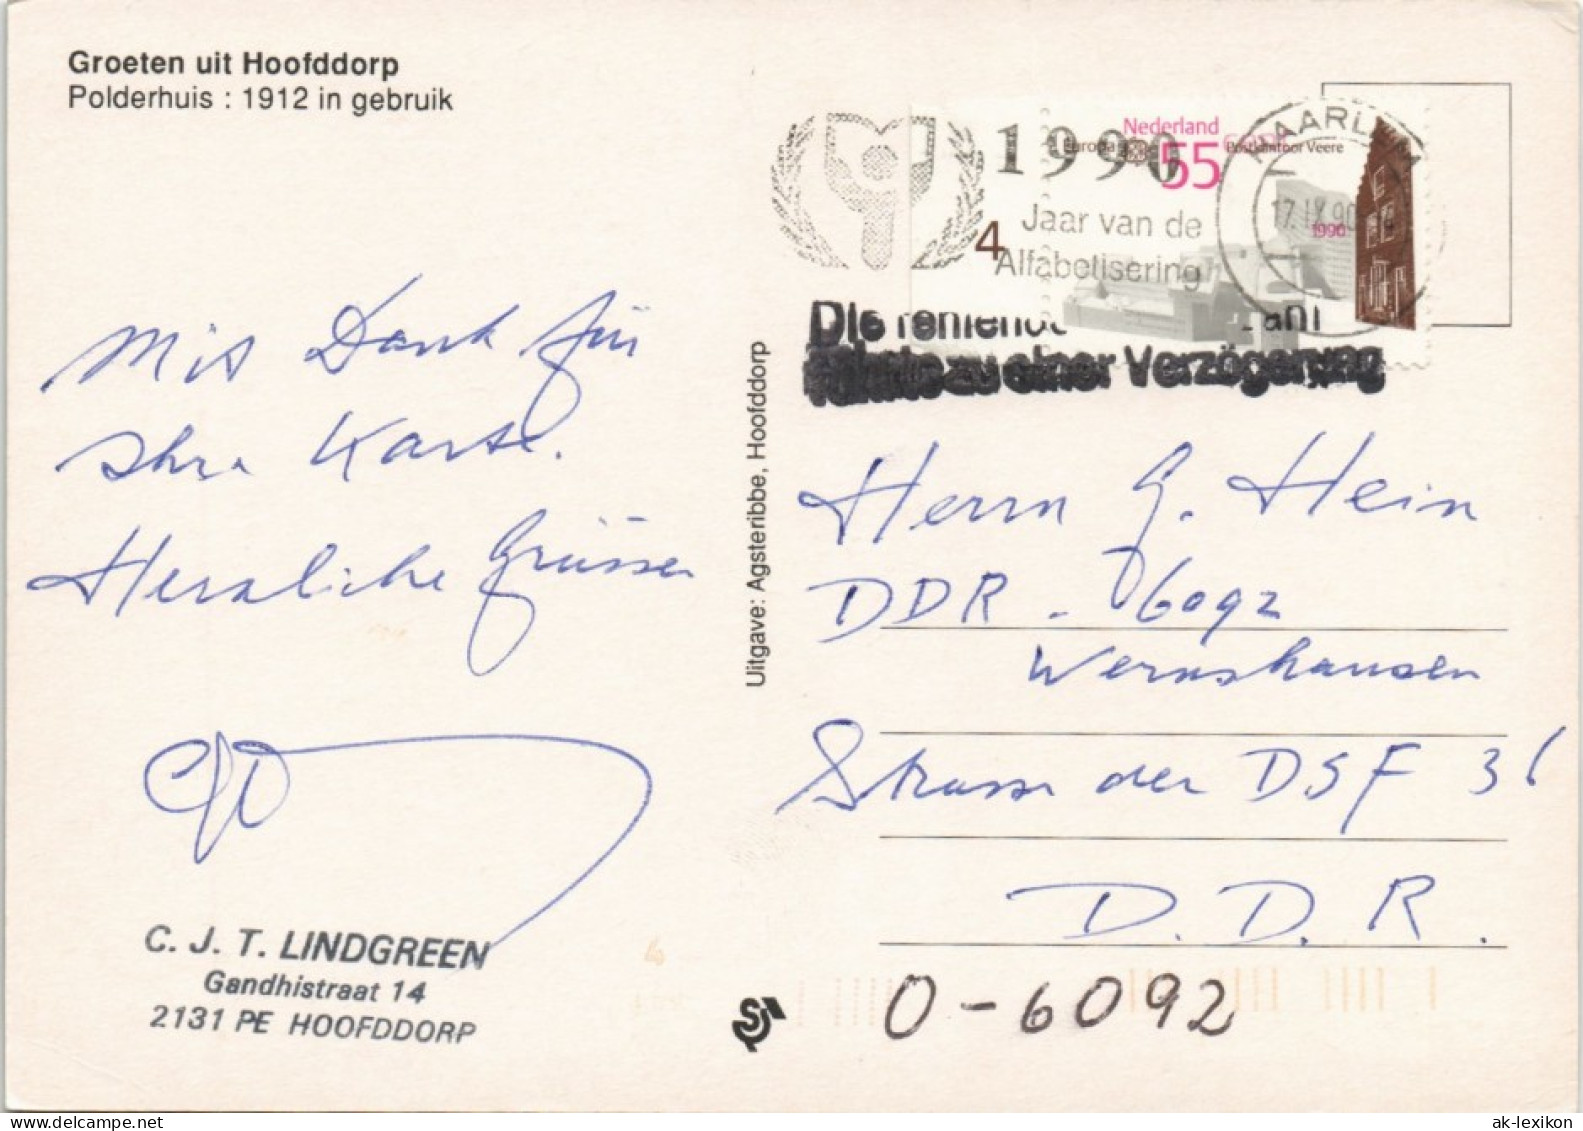 Groeten uit Hoofddorp
Polderhuis : 1912 in gebruik
Mit Dank für
Ihre Karte.
Herzliche Grüsse
C. J. T. LINDGREEN
Gandhistraat 14
2131 PE HOOFDDORP
Uitgave: Agsteribbe, Hoofddorp
1990
Jaar van de
Alfabetisering
Nederland
Europa
55
Postkantoor Veere
4
1990
HAARLEM
17.IX.90
Die
zu einer Verzögerung
Herrn G. Hein
DDR - 6092
Wernshausen
Strasse der DSF 36
D. D. R.
O-6092
hippostcard.com
ak-ansichtskarten.de
ak-lexikon